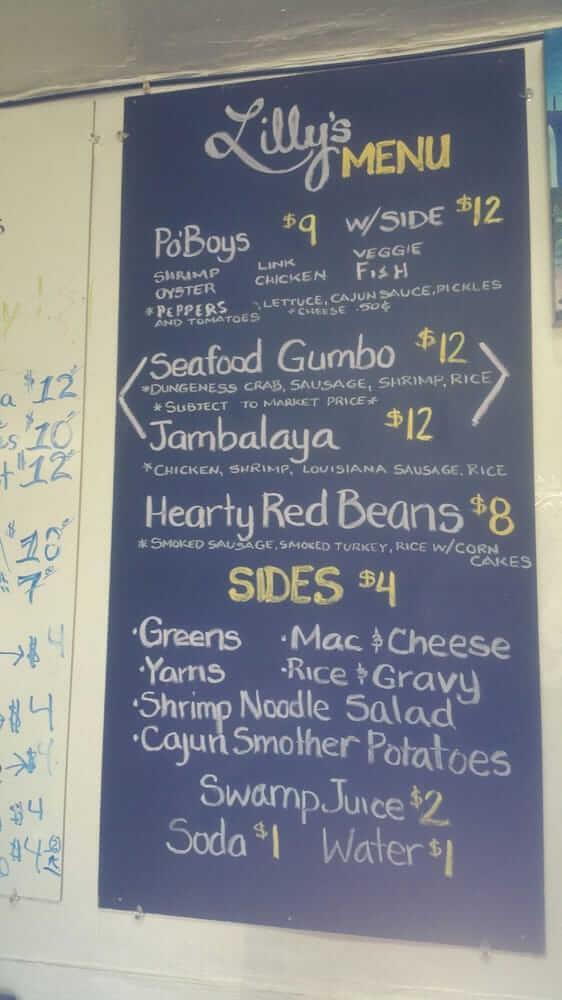 Lilly's MENU
Po'Boys $9 W/SIDE $12
SHRIMP LINK VEGGIE
OYSTER CHICKEN FISH
*PEPPERS LETTUCE, CAJUN SAUCE, PICKLES
AND TOMATOES *CHEESE .50¢
Seafood Gumbo $12
*DUNGENESS CRAB, SAUSAGE, SHRIMP, RICE
*SUBJECT TO MARKET PRICE*
Jambalaya $12
*CHICKEN, SHRIMP, LOUISIANA SAUSAGE, RICE
Hearty Red Beans $8
*SMOKED SAUSAGE, SMOKED TURKEY, RICE W/CORN
CAKES
SIDES $4
·Greens ·Mac & Cheese
·Yams ·Rice & Gravy
·Shrimp Noodle Salad
·Cajun Smother Potatoes
Swamp Juice $2
Soda $1 Water $1
$12
$10
$12
10
7
$4
$4